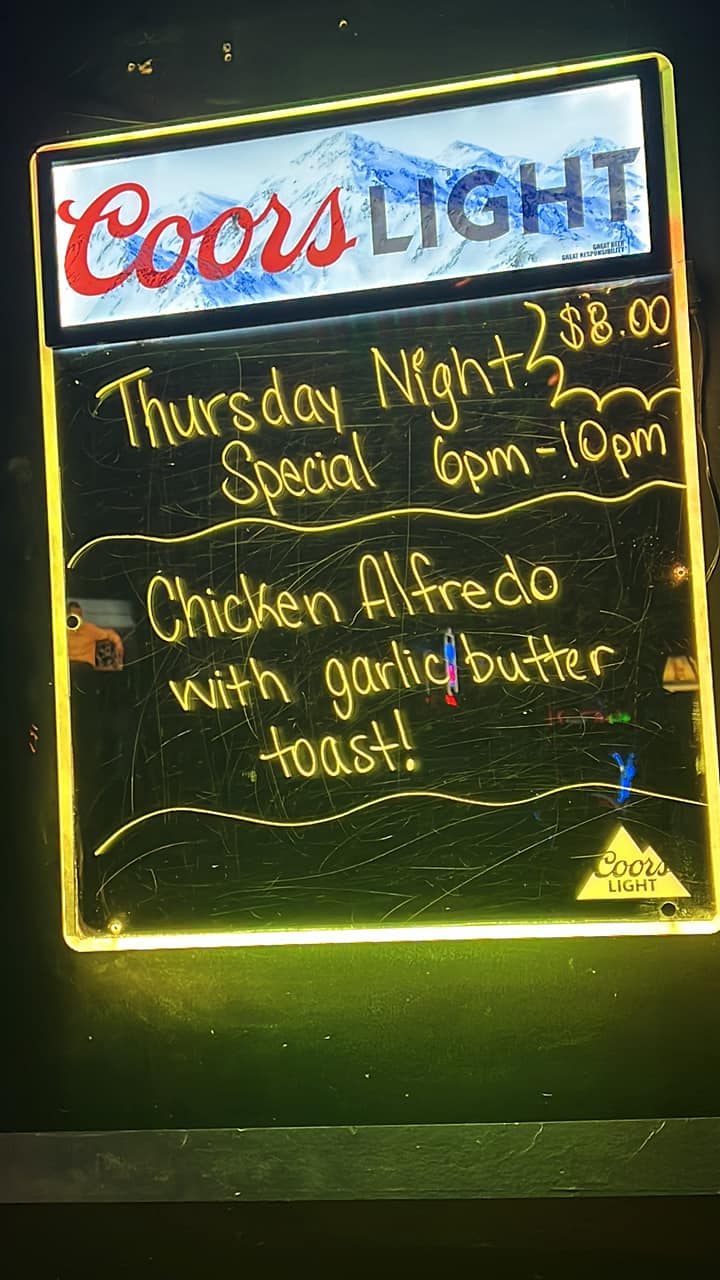 Coors LIGHT
GREAT BEER
GREAT RESPONSIBILITY
$8.00
Thursday Night
Special 6pm-10pm
Chicken Alfredo
with garlic butter
toast!
Coors
LIGHT